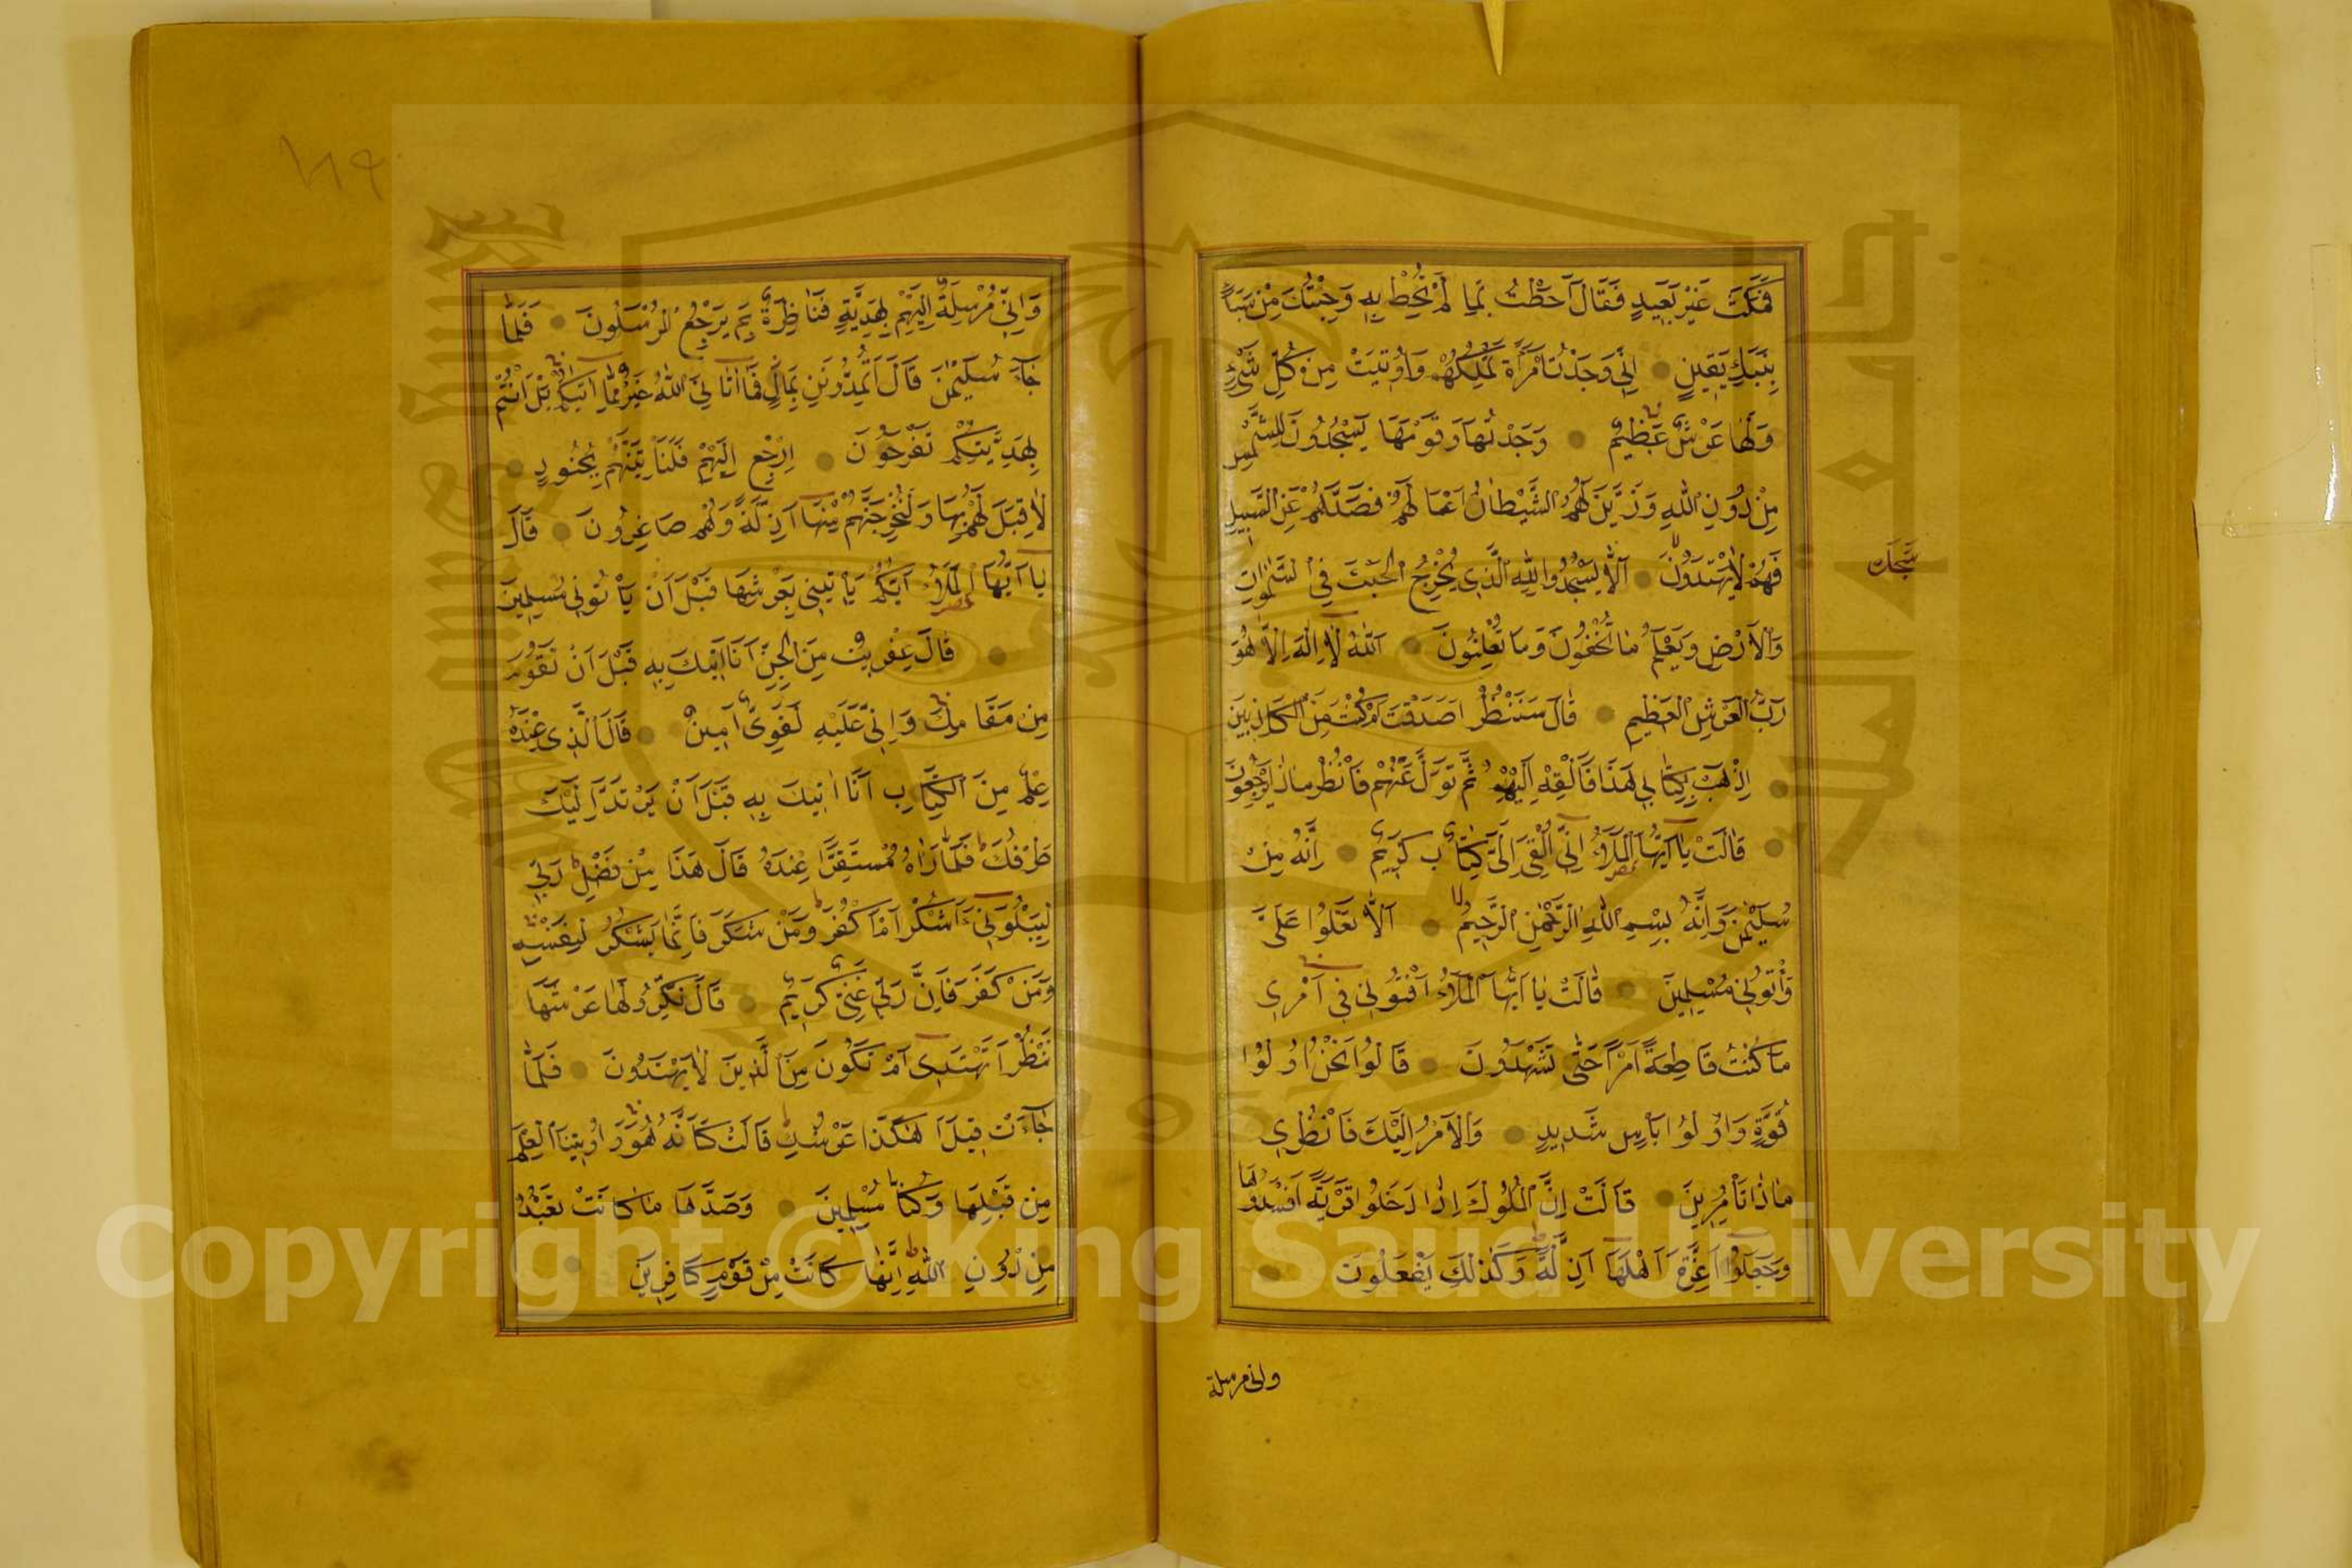 فَمَكَثَ غَيْرَ بَعِيدٍ فَقَالَ اَحَطْتُ بِمَا لَمْ تُحِطْ بِهِ وَجِئْتُكَ مِنْ سَبَأٍ
بِنَبَأٍ يَقِينٍ اِنِّي وَجَدْتُ امْرَأَةً تَمْلِكُهُمْ وَاُوتِيَتْ مِنْ كُلِّ شَيْءٍ
وَلَهَا عَرْشٌ عَظِيمٌ وَجَدْتُهَا وَقَوْمَهَا يَسْجُدُونَ لِلشَّمْسِ
مِنْ دُونِ اللّٰهِ وَزَيَّنَ لَهُمُ الشَّيْطَانُ اَعْمَالَهُمْ فَصَدَّهُمْ عَنِ السَّبِيلِ
فَهُمْ لَا يَهْتَدُونَ اَلَّا يَسْجُدُوا لِلّٰهِ الَّذِي يُخْرِجُ الْخَبْءَ فِي السَّمٰوَاتِ
وَالْاَرْضِ وَيَعْلَمُ مَا تُخْفُونَ وَمَا تُعْلِنُونَ اَللّٰهُ لَا اِلٰهَ اِلَّا هُوَ
رَبُّ الْعَرْشِ الْعَظِيمِ قَالَ سَنَنْظُرُ اَصَدَقْتَ اَمْ كُنْتَ مِنَ الْكَاذِبِينَ
اِذْهَبْ بِكِتَابِي هَذَا فَاَلْقِهْ اِلَيْهِمْ ثُمَّ تَوَلَّ عَنْهُمْ فَانْظُرْ مَاذَا يَرْجِعُونَ
قَالَتْ يَا اَيُّهَا الْمَلَأُ اِنِّي اُلْقِيَ اِلَيَّ كِتَابٌ كَرِيمٌ اِنَّهُ مِنْ
سُلَيْمٰنَ وَاِنَّهُ بِسْمِ اللّٰهِ الرَّحْمٰنِ الرَّحِيمِ اَلَّا تَعْلُوا عَلَيَّ
وَأْتُونِي مُسْلِمِينَ قَالَتْ يَا اَيُّهَا الْمَلَأُ اَفْتُونِي فِي اَمْرِي
مَا كُنْتُ قَاطِعَةً اَمْرًا حَتَّى تَشْهَدُونَ قَالُوا نَحْنُ اُولُوا
قُوَّةٍ وَاُولُوا بَأْسٍ شَدِيدٍ وَالْاَمْرُ اِلَيْكِ فَانْظُرِي
مَاذَا تَأْمُرِينَ قَالَتْ اِنَّ الْمُلُوكَ اِذَا دَخَلُوا قَرْيَةً اَفْسَدُوهَا
وَجَعَلُوا اَعِزَّةَ اَهْلِهَا اَذِلَّةً وَكَذٰلِكَ يَفْعَلُونَ
ولنى مرسلة
١٨٩
وَاِنِّي مُرْسِلَةٌ اِلَيْهِمْ بِهَدِيَّةٍ فَنَاظِرَةٌ بِمَ يَرْجِعُ الْمُرْسَلُونَ فَلَمَّا
جَاءَ سُلَيْمٰنَ قَالَ اَتُمِدُّونَنِ بِمَالٍ فَمَا اٰتَانِيَ اللّٰهُ خَيْرٌ مِمَّا اٰتٰيكُمْ بَلْ اَنْتُمْ
بِهَدِيَّتِكُمْ تَفْرَحُونَ اِرْجِعْ اِلَيْهِمْ فَلَنَأْتِيَنَّهُمْ بِجُنُودٍ
لَا قِبَلَ لَهُمْ بِهَا وَلَنُخْرِجَنَّهُمْ مِنْهَا اَذِلَّةً وَهُمْ صَاغِرُونَ قَالَ
يَا اَيُّهَا الْمَلَأُ اَيُّكُمْ يَأْتِينِي بِعَرْشِهَا قَبْلَ اَنْ يَأْتُونِي مُسْلِمِينَ
قَالَ عِفْرِيتٌ مِنَ الْجِنِّ اَنَا اٰتِيكَ بِهِ قَبْلَ اَنْ تَقُومَ
مِنْ مَقَامِكَ وَاِنِّي عَلَيْهِ لَقَوِيٌّ اَمِينٌ قَالَ الَّذِي عِنْدَهُ
عِلْمٌ مِنَ الْكِتَابِ اَنَا اٰتِيكَ بِهِ قَبْلَ اَنْ يَرْتَدَّ اِلَيْكَ
طَرْفُكَ فَلَمَّا رَاٰهُ مُسْتَقِرًّا عِنْدَهُ قَالَ هَذَا مِنْ فَضْلِ رَبِّي
لِيَبْلُوَنِي ءَاَشْكُرُ اَمْ اَكْفُرُ وَمَنْ شَكَرَ فَاِنَّمَا يَشْكُرُ لِنَفْسِهِ
وَمَنْ كَفَرَ فَاِنَّ رَبِّي غَنِيٌّ كَرِيمٌ قَالَ نَكِّرُوا لَهَا عَرْشَهَا
نَنْظُرْ اَتَهْتَدِي اَمْ تَكُونُ مِنَ الَّذِينَ لَا يَهْتَدُونَ فَلَمَّا
جَاءَتْ قِيلَ اَهٰكَذَا عَرْشُكِ قَالَتْ كَاَنَّهُ هُوَ وَاُوتِينَا الْعِلْمَ
مِنْ قَبْلِهَا وَكُنَّا مُسْلِمِينَ وَصَدَّهَا مَا كَانَتْ تَعْبُدُ
مِنْ دُونِ اللّٰهِ اِنَّهَا كَانَتْ مِنْ قَوْمٍ كَافِرِينَ
Copyright © King Saud University